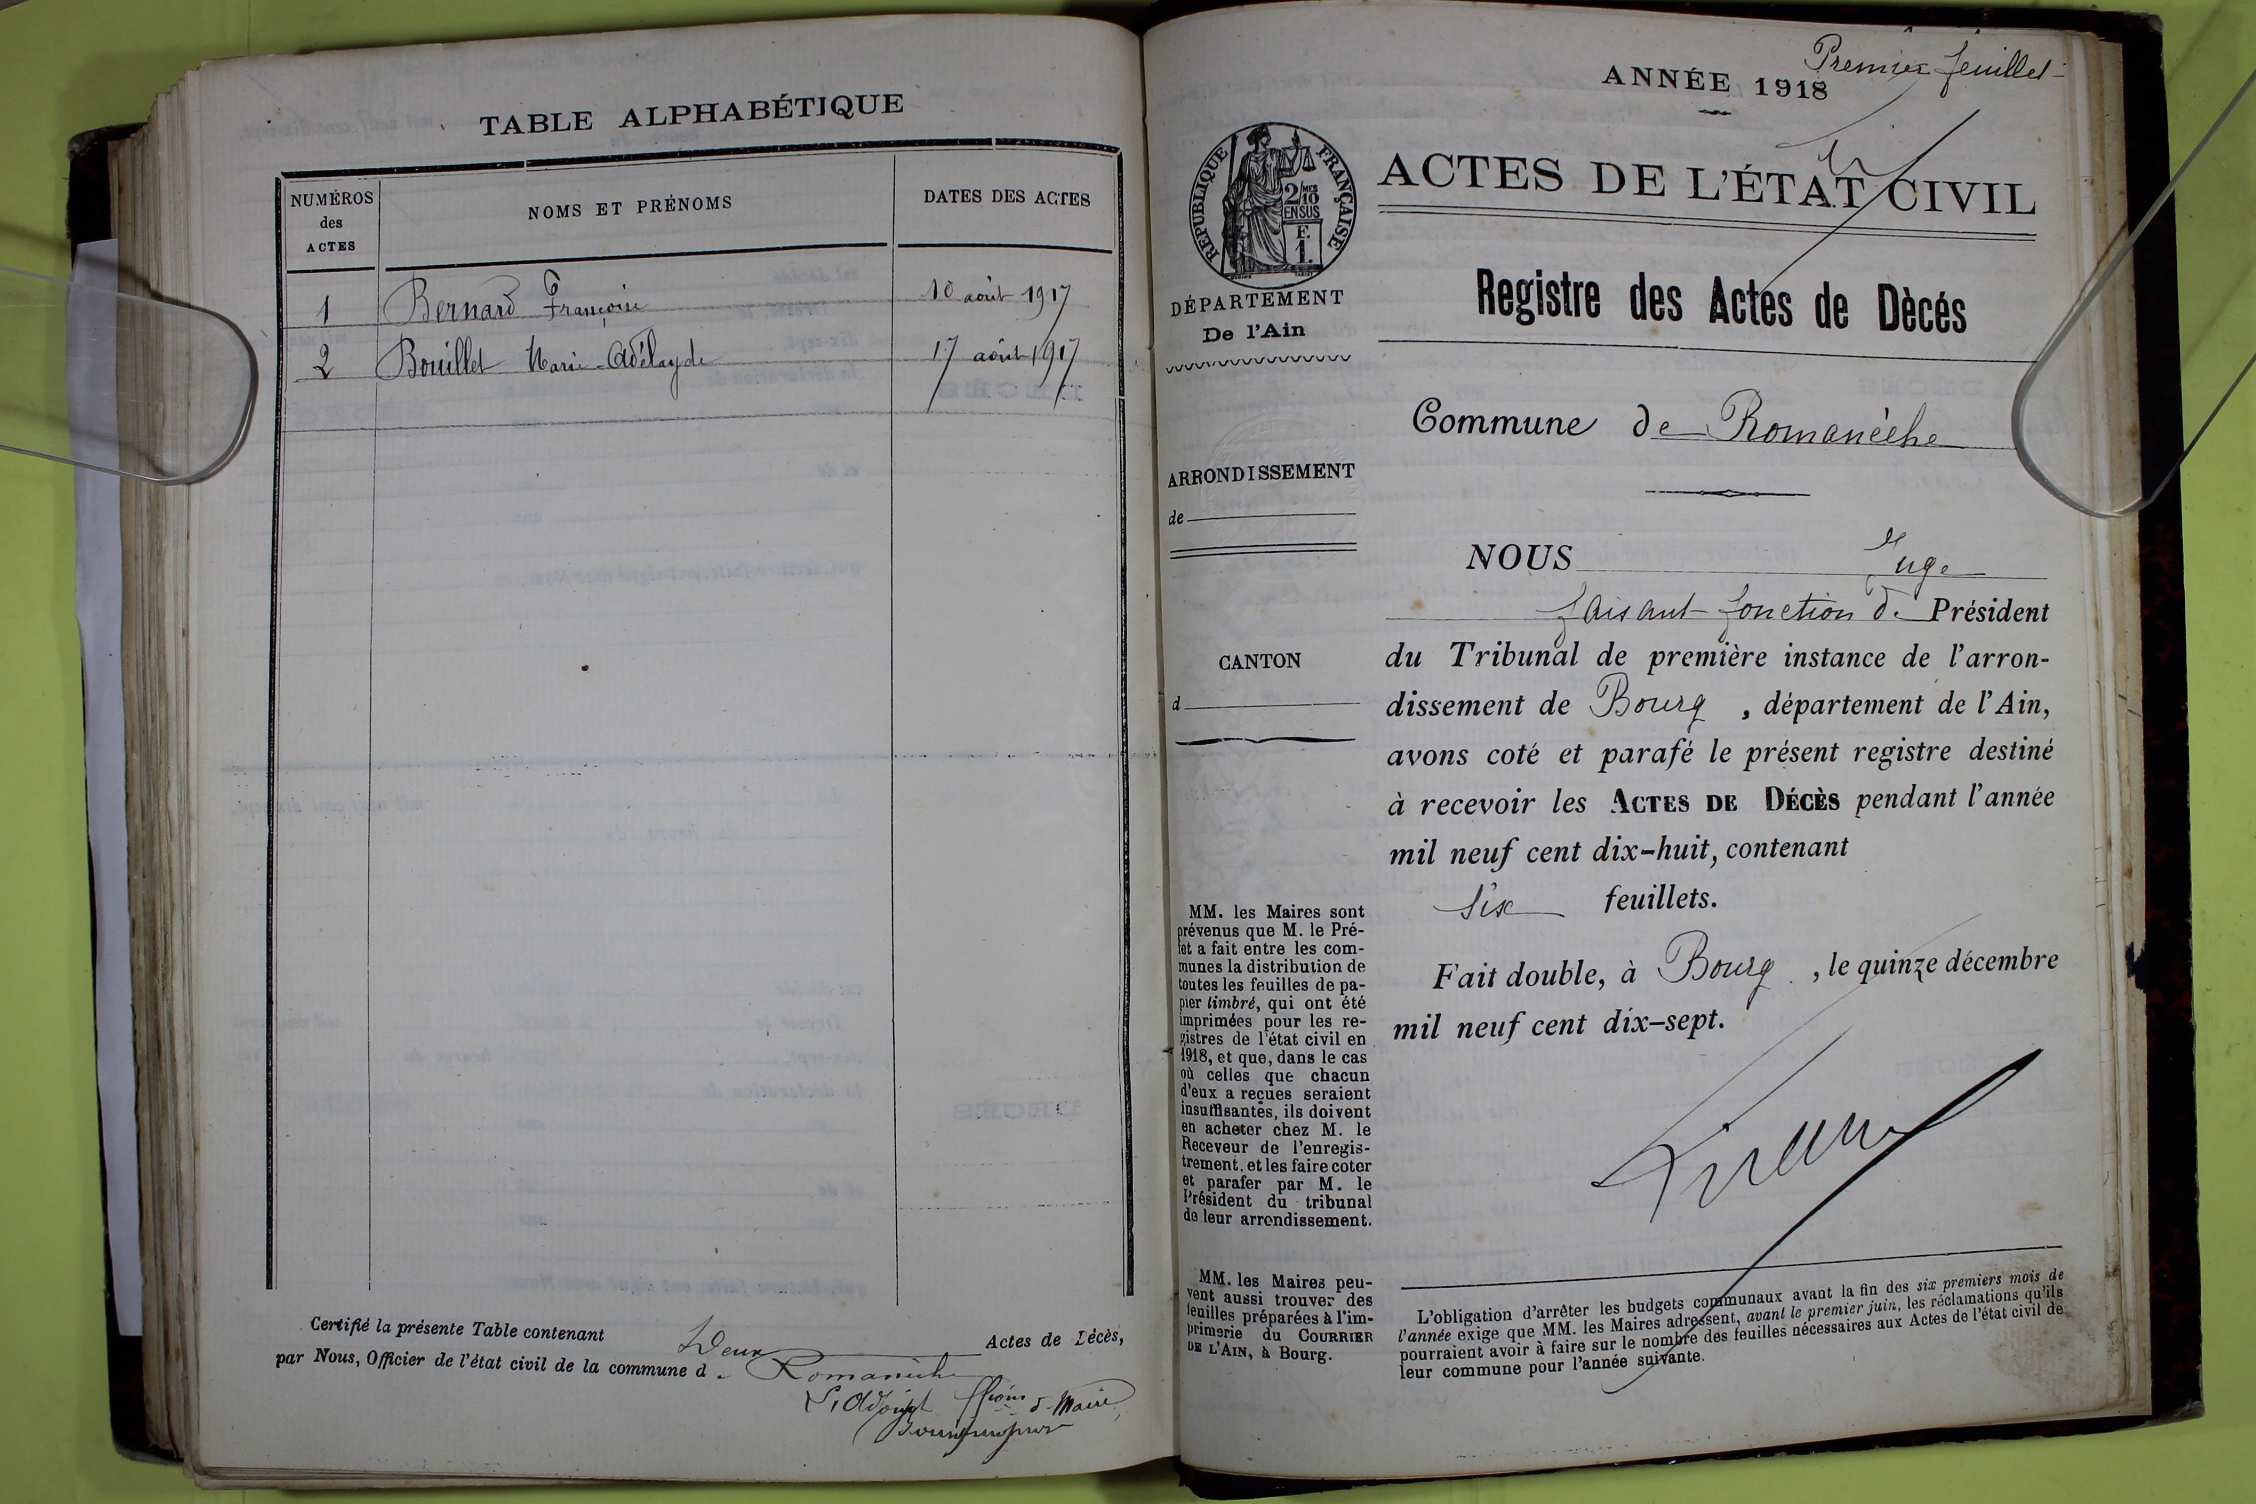 TABLE ALPHABÉTIQUE
NUMÉROS
des
ACTES
NOMS ET PRÉNOMS
DATES DES ACTES
1 Bernard Françoise 10 août 1917
2 Bouillet Marie-Adélayde 17 août 1917
Certifié la présente Table contenant Deux Actes de Décès,
par Nous, Officier de l'état civil de la commune d. Romanèche
L'Adjoint ffions de Maire
Premier feuillet
ANNÉE 1918
RÉPUBLIQUE FRANÇAISE
2/10 MES
EN SUS
F.
1.
ACTES DE L'ÉTAT CIVIL
DÉPARTEMENT
De l'Ain
Registre des Actes de Dècés
Commune de Romanèche
ARRONDISSEMENT
de
CANTON
d
NOUS Juge
faisant fonction de Président
du Tribunal de première instance de l'arron-
dissement de Bourg, département de l'Ain,
avons coté et parafé le présent registre destiné
à recevoir les ACTES DE DÉCÈS pendant l'année
mil neuf cent dix-huit, contenant
Six feuillets.
Fait double, à Bourg, le quinze décembre
mil neuf cent dix-sept.
MM. les Maires sont
prévenus que M. le Pré-
fet a fait entre les com-
munes la distribution de
toutes les feuilles de pa-
pier timbré, qui ont été
imprimées pour les re-
gistres de l'état civil en
1918, et que, dans le cas
où celles que chacun
d'eux a reçues seraient
insuffisantes, ils doivent
en acheter chez M. le
Receveur de l'enregis-
trement, et les faire coter
et parafer par M. le
Président du tribunal
de leur arrondissement.
MM. les Maires peu-
vent aussi trouver des
feuilles préparées à l'im-
primerie du COURRIER
DE L'AIN, à Bourg.
L'obligation d'arrêter les budgets communaux avant la fin des six premiers mois de
l'année exige que MM. les Maires adressent, avant le premier juin, les réclamations qu'ils
pourraient avoir à faire sur le nombre des feuilles nécessaires aux Actes de l'état civil de
leur commune pour l'année suivante.